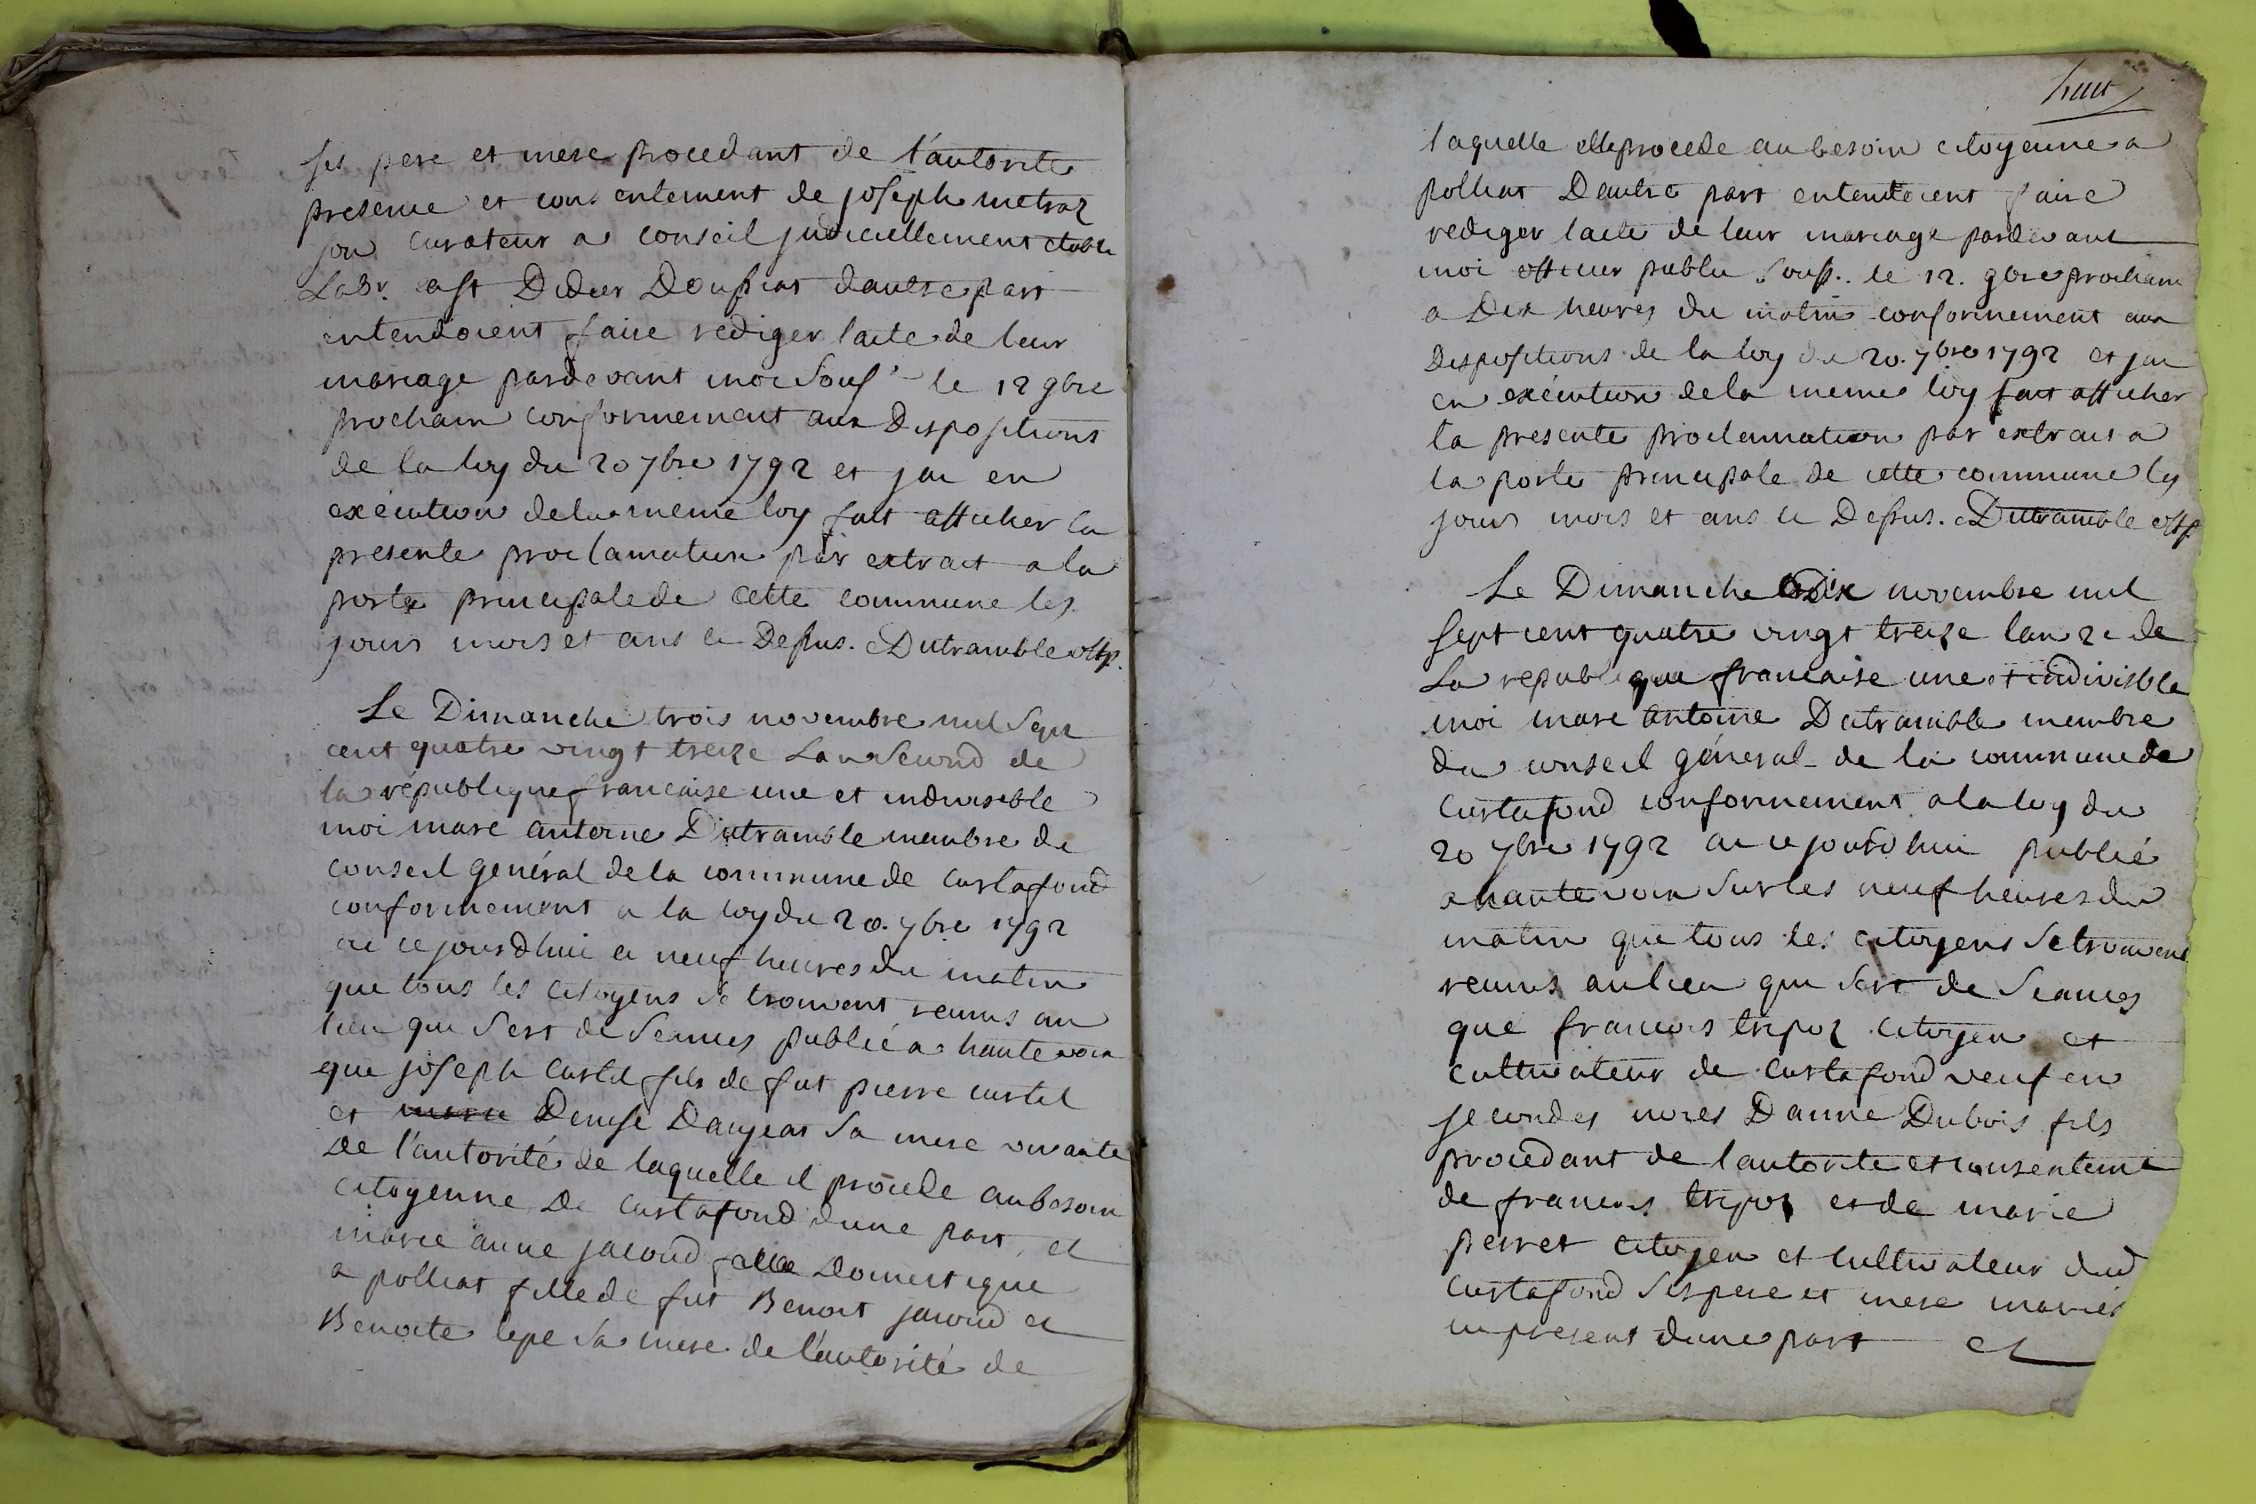 ses pere et mere procedant de l'autorite
presence et consentement de joseph metraz
son curateur a conseil judiciellement etabli
Labr. a st Didier Doussiat dautre part
entendoient faire rediger lacte de leur
mariage pardevant moi Sous.é le 12 9bre
prochain conformement aux Dispositions
de la loy du 20 7bre 1792 et jai en
exécution de la meme loy fait afficher la
presente proclamation par extrait a la
porte principale de cette commune les
jours mois et ans ci Dessus. Dutramble offp.
Le Dimanche trois novembre mil Sept
cent quatre vingt treize Lan Second de
la république francaise une et indivisible
moi marc antoine Dutramble membre du
conseil général de la commune de Curtafond
conformement a la loy du 20. 7bre 1792
ai ce jourdhui a neuf heures du matin
que tous les citoyens se trouvent reunis au
lieu qui Sert de Seances publié a haute voix
que joseph Curtil fils de fut pierre curtil
et marie Denise Daujeat Sa mere vivante
de l'autorité de laquelle il procede au besoin
citoyenne de curtafond dune part, et
marie anne jacoud fille Domestique
a polliat fille de fut Benoit jacoud et
Benoite lepe Sa mere de l'autorité de
huit
laquelle elle procede au besoin citoyenne a
polliat Dautre part entendoient faire
rediger lacte de leur mariage pardevant
moi officier public Souss. le 12. 9bre prochain
a Dix heures du matin conformement aux
Dispositions de la loy du 20. 7bre 1792 et jai
en exécution de la meme loy fait afficher
la presente proclamation par extrait a
la porte principale de cette commune les
jours mois et ans ci Dessus. Dutramble offp.
Le Dimanche Dix novembre mil
Sept cent quatre vingt treize lan 2e de
La republique francaise une et indivisible
moi marc antoine Dutramble membre
du conseil géneral de la commune de
Curtafond conformement a la loy du
20 7bre 1792 ai ce jourdhui publié
a haute voix Sur les neuf heures du
matin que tous les citoyens Se trouvent
reunis au lieu qui Sert de Seances
que francois tripoz citoyen et
cultivateur de Curtafond veuf en
secondes noces Danne Dubois fils
procedant de lautorite et consentemt
de francois tripoz et de marie
perret citoyen et cultivateur dud
Curtafond Ses pere et mere mariés
ici present dune part et